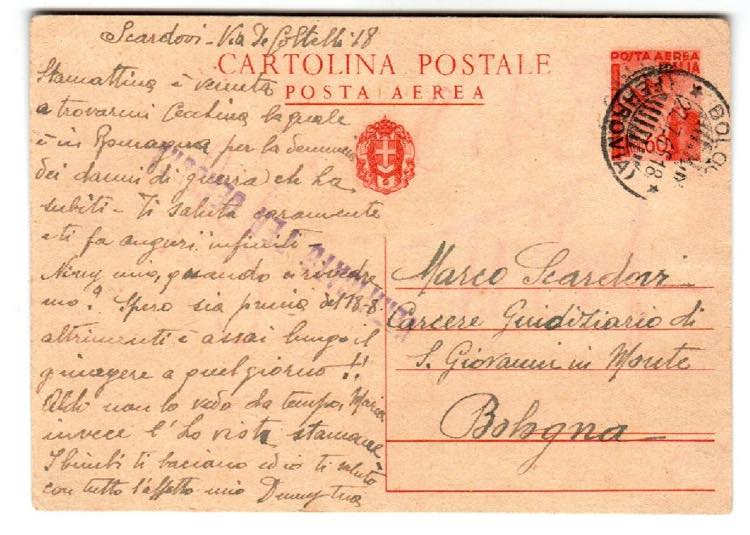 Scardovi - Via De Coltelli 18
CARTOLINA POSTALE
POSTA AEREA
POSTA AEREA
ITALIA
BOLOGNA
(FERROVIA)
Stamattina è venuta
a trovarmi Cecchina la quale
è in Romagna per la denuncia
dei danni di guerra che ha
subiti - Ti saluta caramente
e ti fa auguri infiniti -
mio, quando ci rivedre
mo? Spero sia prima del 18-8
altrimenti è assai lungo il
giungere a quel giorno!!
non lo vedo da tempo, Maria
invece l'ho vista stamane
I bimbi ti baciano ed io ti saluto
con tutto l'affetto mio tua
Marco Scardovi
Carcere Giudiziario di
S. Giovanni in Monte
Bologna